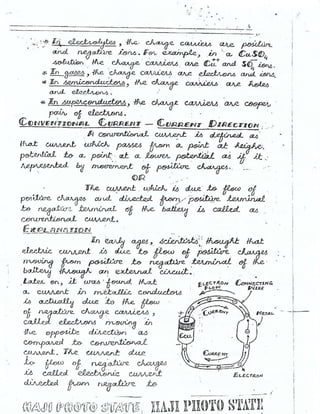 * In electrolytes, the charge carriers are positive
and negative ions. For example, in a CuSO4
solution the charge carriers are Cu++ and SO4-- ions.
* In gases, the charge carriers are electrons and ions.
* In semiconductors, the charge carriers are holes
and electrons.
* In superconductors, the charge carriers are cooper
pair of electrons.
CONVENTIONAL CURRENT — CURRENT DIRECTION
A conventional current is defined as
that current which passes from a point at height
potential to a point at a lower potential as if it
represented by movement of positive charges.
OR
The current which is due to flow of
positive charges and directed from positive terminal
to negative terminal of the battery is called as
conventional current.
EXPLANATION
In early ages, scientists thought that
electric current is due to flow of positive charges
moving from positive to negative terminal of the
battery through an external circuit.
Later on, it was found that
a current in metallic conductors
is actually due to the flow
of negative charge carriers,
called electrons moving in
the opposite direction as
compared to conventional
current. The current due
to flow of negative charges
is called electronic current
directed from negative to
ELECTRON FLOW
CONNECTING WIRE
CURRENT
METAL
CELL
CURRENT
ELECTRON
HAJI PHOTO STATE HAJI PHOTO STATE